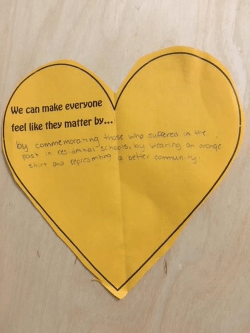 We can make everyone
feel like they matter by...
by commemorating those who suffered in the
past in residential schools, by wearing an orange
shirt and representing a better community.